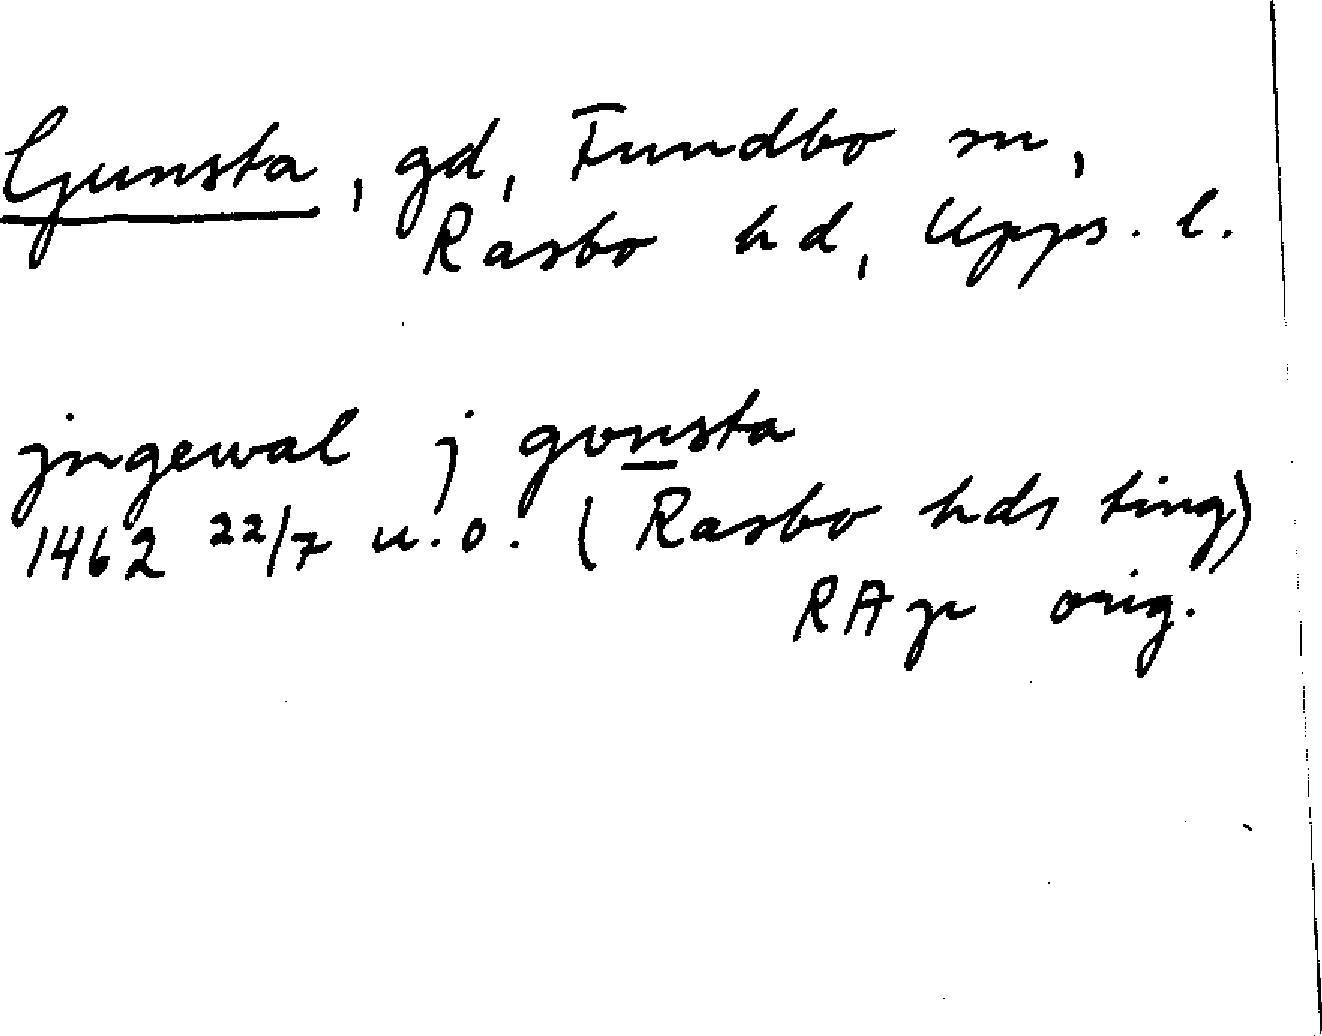 Gunsta, gd, Fundbo sn,
Rasbo hd, Upps. l.
jngewal j gonsta
1462 22/7 u.o. (Rasbo hds ting)
RAp orig.